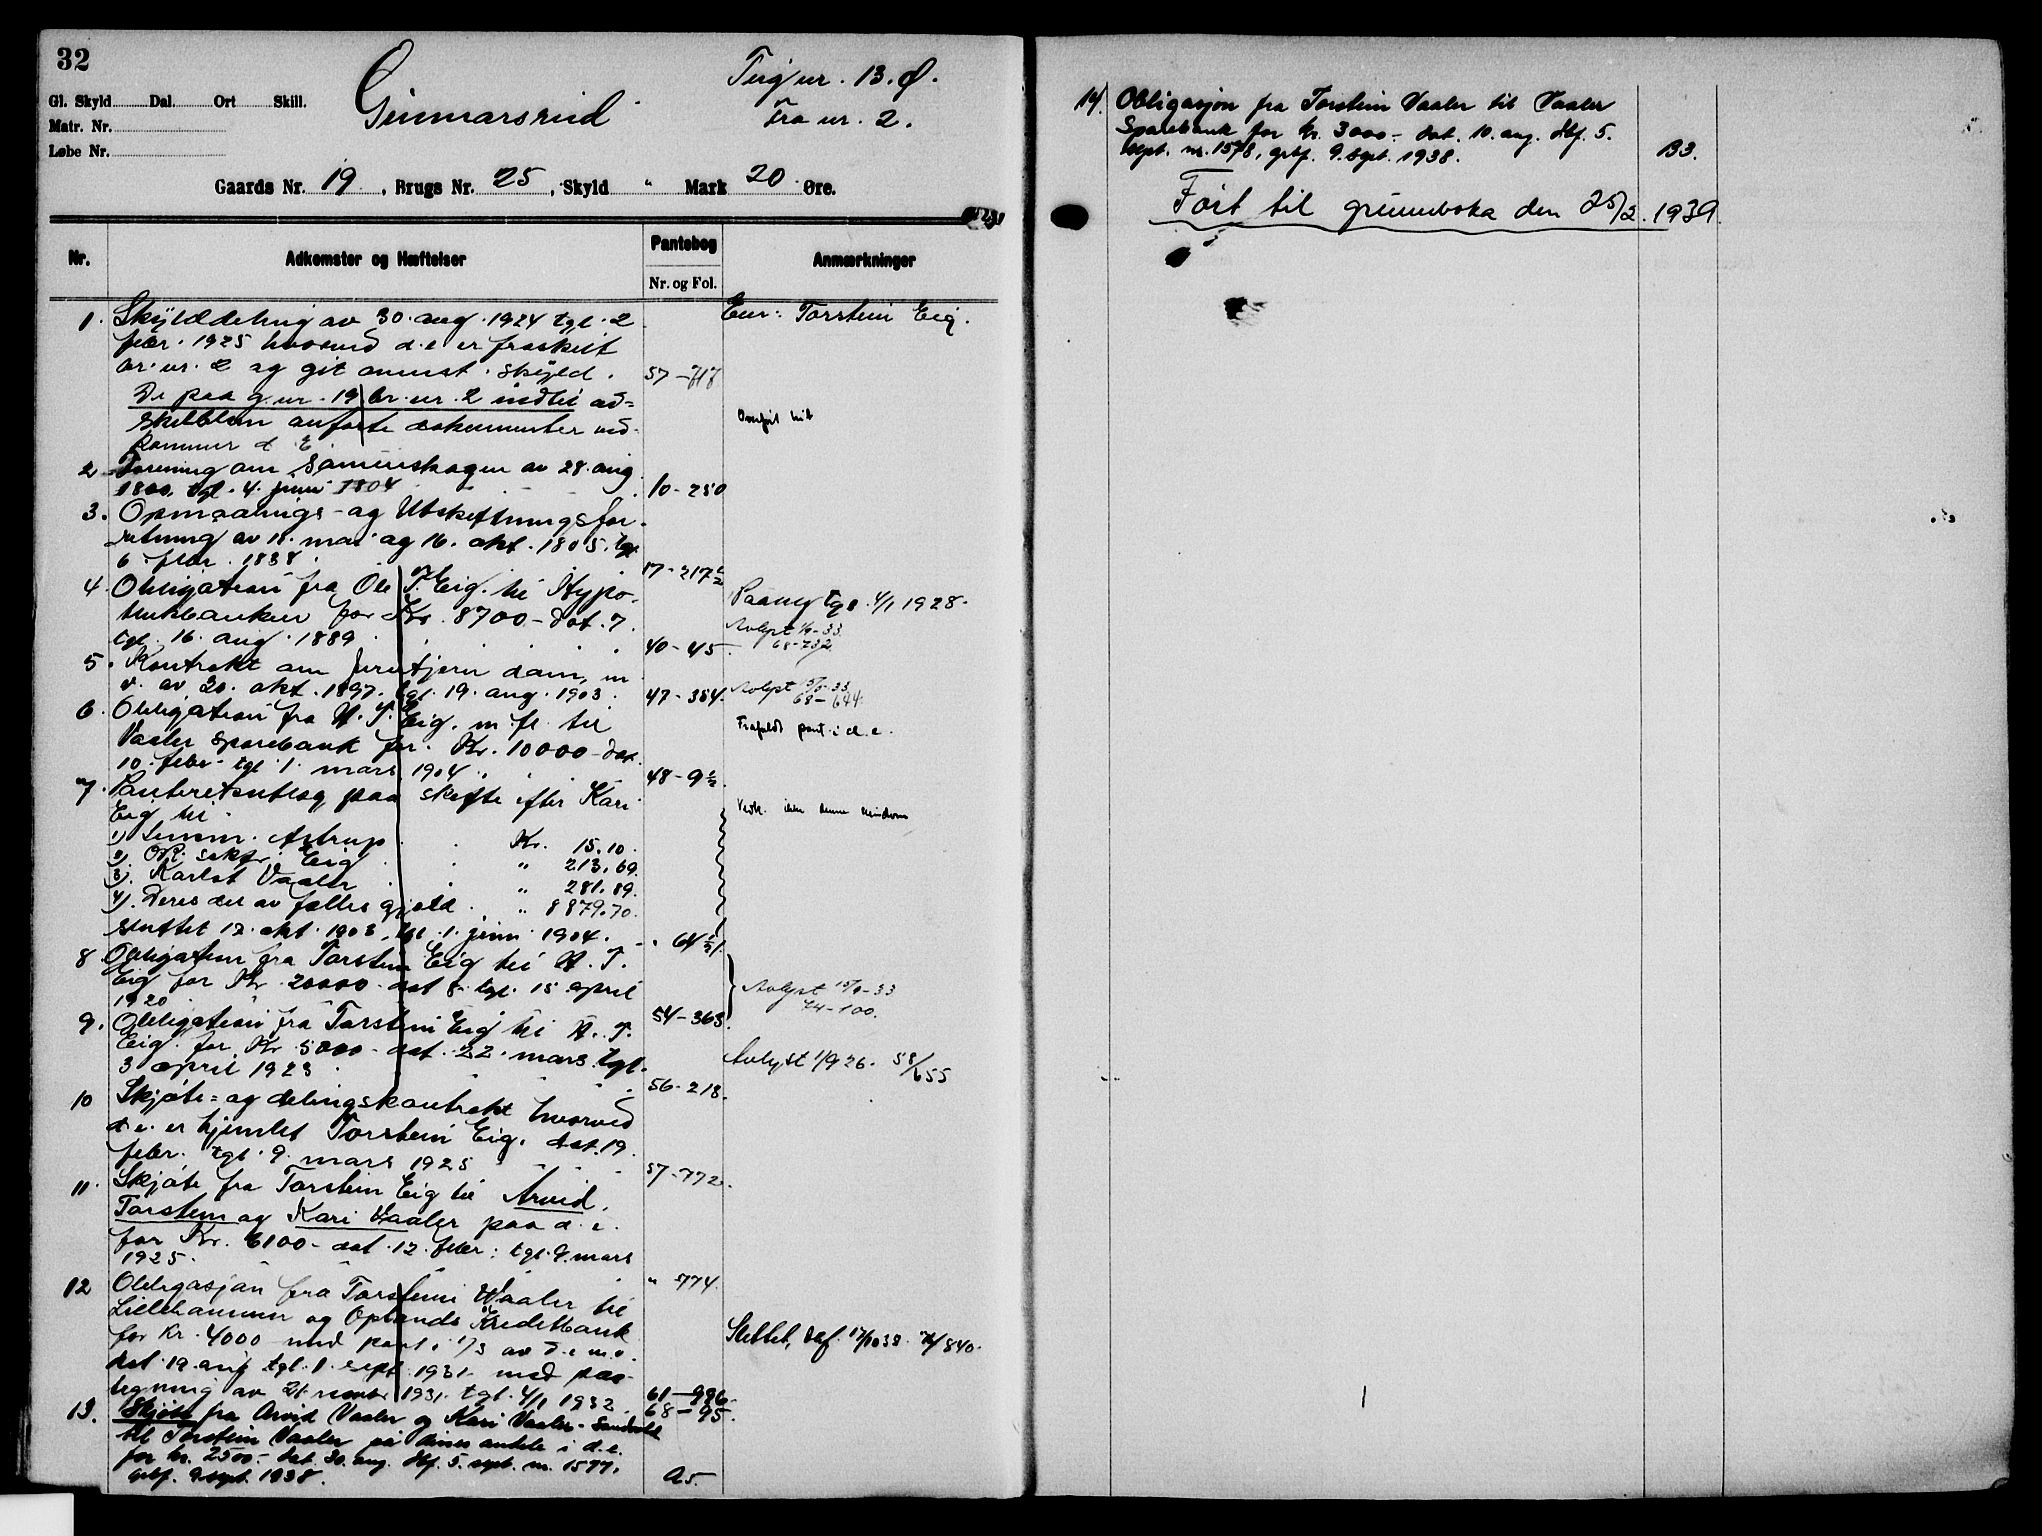 32
Gl. Skyld Dal. Ort Skill.
Matr. Nr.
Løbe Nr.
Gunnarsrud
Tingnr. 13. Ø.
Fra nr. 2.
Gaards Nr. 19, Brugs Nr. 25, Skyld " Mark 20 Øre.
Nr. Adkomster og Hæftelser Pantebog Nr. og Fol. Anmærkninger
1. Skylddeling av 30. aug. 1924 tgl. 2
febr. 1925 hvorved d.e er fraskilt
br. nr. 2 og git anmst. skyld. 57-717
Eier: Torstein Eig.
De paa g.nr. 19 br. nr. 2 indtil ad=
skillelsen anførte dokumenter ved=
kommer d. E.
Overført hit
2. Forening om Sameieskogen av 28. aug.
1800, tgl. 4. juni 1804 10-250
3. Opmaalings- og Utskiftningsfor-
retning av 11. mai og 16. okt. 1805. tgl.
6. febr. 1838 17-217½
4. Obligation fra Ole T. Eig. til Hypo-
thekbanken for Kr. 8700- dat. 7.
tgl. 16. aug. 1889 40-45
Paany tgl. 4/1 1928.
Avlyst 1/9-33
68-732
5. Kontrakt om Furutjern dam, m
v. av 30. okt. 1897. tgl. 19. aug. 1903. 47-354.
Avlyst 15/8-33
68-694
6. Obligation fra H. T. Eig. m. fl. til
Vaaler sparebank for Kr. 10000- dat.
10. febr. tgl. 1. mars 1904 48-9½
Frafaldt pant i d.e.
7. Panteretsutlæg paa skifte efter Kari
Eig til
1) Lensm. Astrup Kr. 15.10.
2) OR. sakfr. Eig " 213.69.
3) Karlot Vaaler " 281.89.
4). Deres del av fælles gjæld " 8879.70.
sluttet 12. okt. 1903, tgl. 1. juni 1904. " 64½
Vedk. ikke denne eiendom
8. Obligation fra Torstein Eig til H. T.
Eig for Kr. 20000- dat 8. tgl. 15 april
1920 54-363.
Avlyst 15/8-33
74-100.
9. Obligation fra Torstein Eig til H. T.
Eig. for Kr 5000- dat. 22. mars tgl.
3 april 1923 56-218.
Avlyst 1/9 26. 58/655
10 Skjøte= og delingskontrakt hvorved
d.e. er hjemlet Torstein Eig. dat. 19.
febr. tgl. 9. mars 1925 57-772.
11. Skjøte fra Torstein Eig til Arvid,
Torstein og Kari Vaaler paa d.e.
for Kr. 6100- dat. 12. febr. tgl. 9. mars
1925. " 774.
12 Obligasjon fra Torstein Vaaler til
Lillehammer og Oplands Kreditbank
for Kr. 4000 med pant i 1/3 av d.e m.v.
dat. 19. aug tgl. 1. sept. 1931. med paa-
tegning av 21. novbr. 1931. tgl. 4/1 1932 61-996.
68-95.
Slettet, dbf. 17/10 38. 74/840.
13. Skjøte fra Arvid Vaaler og Kari Vaaler-
til Torstein Vaaler på disses andele i d.e.
for kr. 2500.- dat. 30. aug. dbf. 5. sept. nr. 1577.
grbf. 9. sept. 1938. A5.
14. Obligasjon fra Torstein Vaaler til Vaaler
Sparebank for kr. 3000.- dat. 10. aug. dbf. 5.
sept. nr. 1578, grbf. 9. sept. 1938. B3.
Ført til grunnboka den 25/2. 1939.